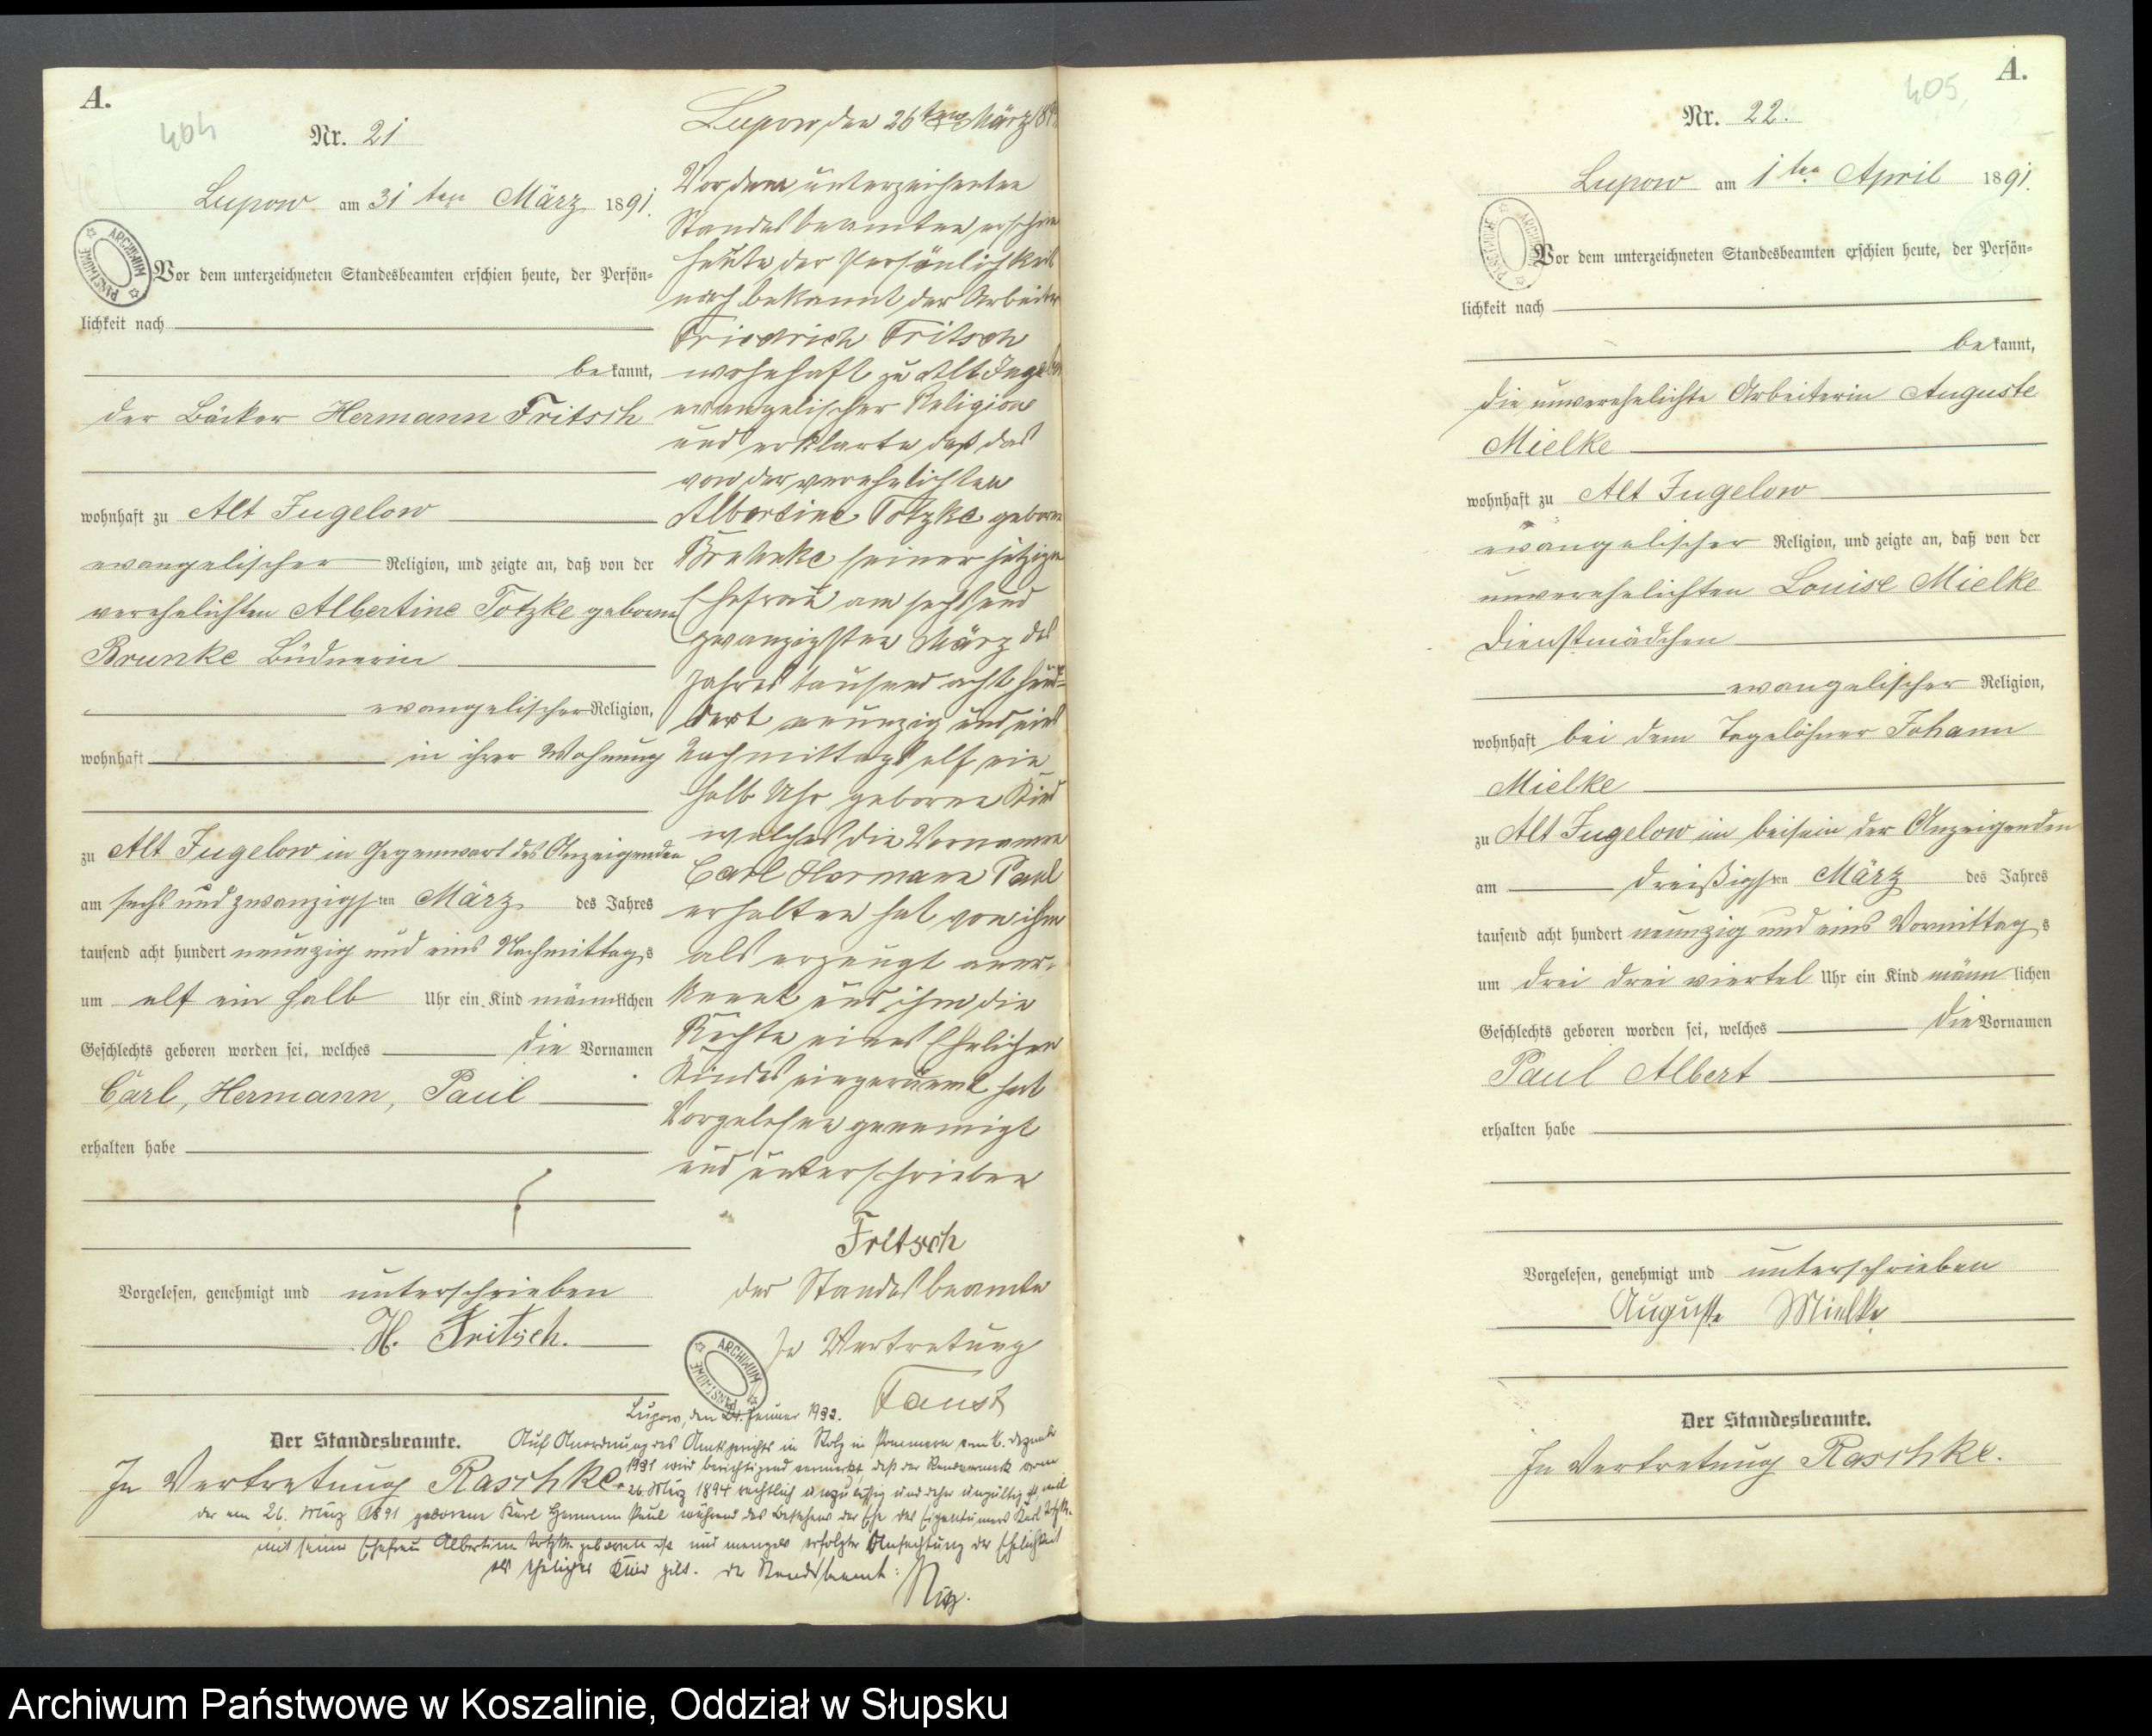 A.
404
Nr. 21
Lupow am 31 ten März 1891.
Vor dem unterzeichneten Standesbeamten erschien heute, der Persön-
lichkeit nach
bekannt,
der Bäcker Hermann Fritsch
wohnhaft zu Alt Jugelow
evangelischer Religion, und zeigte an, daß von der
verehelichten Albertine Totzke geborne
Brunke Büdnerin
evangelischer Religion,
wohnhaft in ihrer Wohnung
zu Alt Jugelow in Gegenwart des Anzeigenden
am sechs und zwanzigsten März des Jahres
tausend acht hundert neunzig und eins Nachmittags
um elf ein halb Uhr ein Kind männlichen
Geschlechts geboren worden sei, welches die Vornamen
Carl, Hermann, Paul
erhalten habe
Vorgelesen, genehmigt und unterschrieben
H. Fritsch.
Der Standesbeamte.
In Vertretung Raschke.
Lupow, den 26ten März 18
Vor dem unterzeichneten
Standesbeamten erschien
heute der Persönlichkeit
nach bekannt der Arbeiter
Friedrich Fritsch
wohnhaft zu Alt Jugelow
evangelischer Religion
und erklarte daß das
von der verehelichten
Albertine Totzke geborne
seiner jetzigen
Ehefrau am sechs und
zwanzigsten März des
Jahres tausend acht hun-
dert neunzig und eins
Nachmittags elf ein
halb Uhr geborne Kind
welches die Vornamen
Carl Hermann Paul
erhalten hat von ihm
als erzeugt aner-
kennt und ihm die
Rechte eines Ehelichen
Kindes eingeräumt hat
Vorgelesen genemigt
und unterschrieben
Fritsch
der Standesbeamte
In Vertretung
Faust
Lupow, den 24. Januar 1932.
Auf Anordnung des Amtsgerichts in Stolp in Pommern vom 16. Dezember
1931 wird berichtigend vermerkt, daß der Randvermerk vom
26. März 1894 rechtlich unzulässig und daher ungültig ist weil
der am 26. März 1891 geborene Karl Hermann Paul während des Bestehens der Ehe des Eigentümers Karl Totzke
mit seiner Ehefrau Albertine Totzke geboren ist und mangels erfolgter Anfechtung der Ehelichkeit
als eheliches Kind gilt. Der Standesbeamte:
ARCHIWUM PAŃSTWOWE
ARCHIWUM PAŃSTWOWE
A.
405,
Nr. 22.
Lupow am 1 ten April 1891.
Vor dem unterzeichneten Standesbeamten erschien heute, der Persön-
lichkeit nach
bekannt,
die unverehelichte Arbeiterin Auguste
Mielke
wohnhaft zu Alt Jugelow
evangelischer Religion, und zeigte an, daß von der
unverehelichten Louise Mielke
Dienstmädchen
evangelischer Religion,
wohnhaft bei dem Tagelöhner Johann
Mielke
zu Alt Jugelow im beisein der Anzeigenden
am dreißigsten März des Jahres
tausend acht hundert neunzig und eins Vormittags
um drei drei viertel Uhr ein Kind männlichen
Geschlechts geboren worden sei, welches die Vornamen
Paul Albert
erhalten habe
Vorgelesen, genehmigt und unterschrieben
Auguste Mielke
Der Standesbeamte.
In Vertretung Raschke.
Archiwum Państwowe w Koszalinie, Oddział w Słupsku